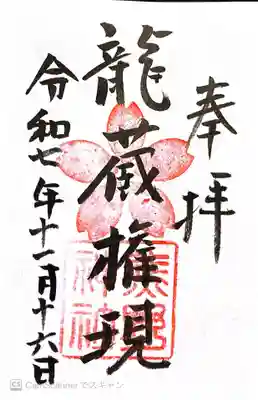 奉拝
龍蔵権現
令和七年十一月十六日
CamScanner でスキャン